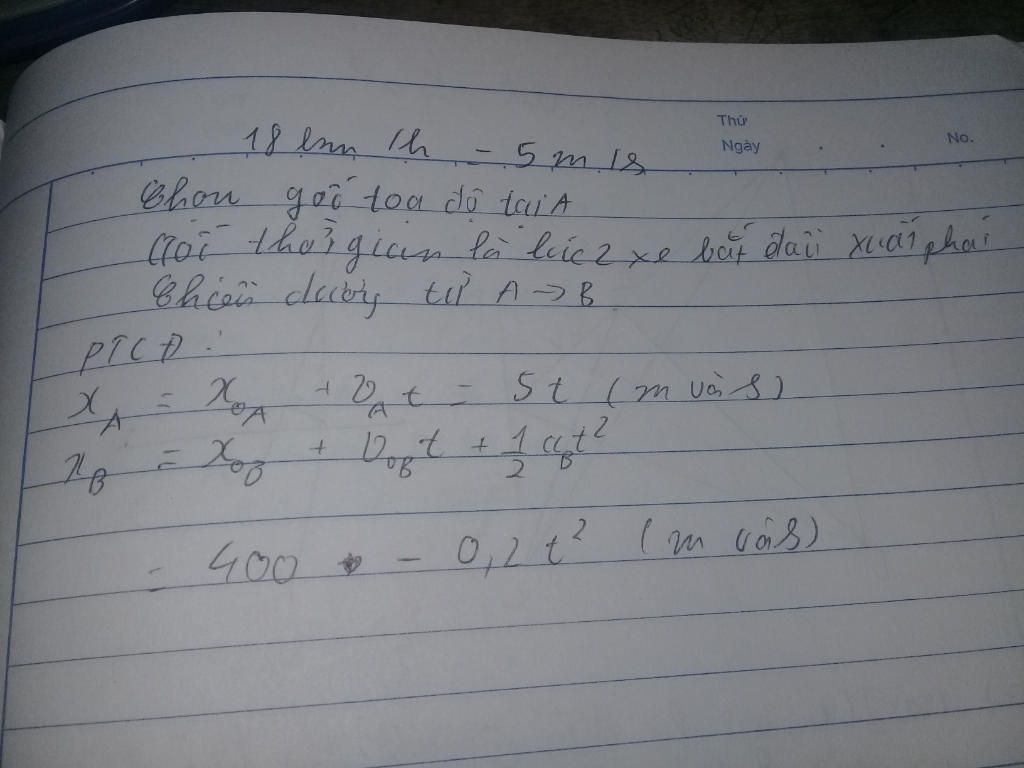 Thứ
Ngày . . No.
18 km/h = 5 m/s
Chọn gốc toạ độ tại A
Gốc thời gian là lúc 2 xe bắt đầu xuất phát
Chiều dương từ A → B
PTCĐ :
x_A = x_{0A} + v_A t = 5t (m và s)
x_B = x_{0B} + v_{0B} t + \frac{1}{2} a_B t^2
= 400 - 0,2 t^2 (m và s)